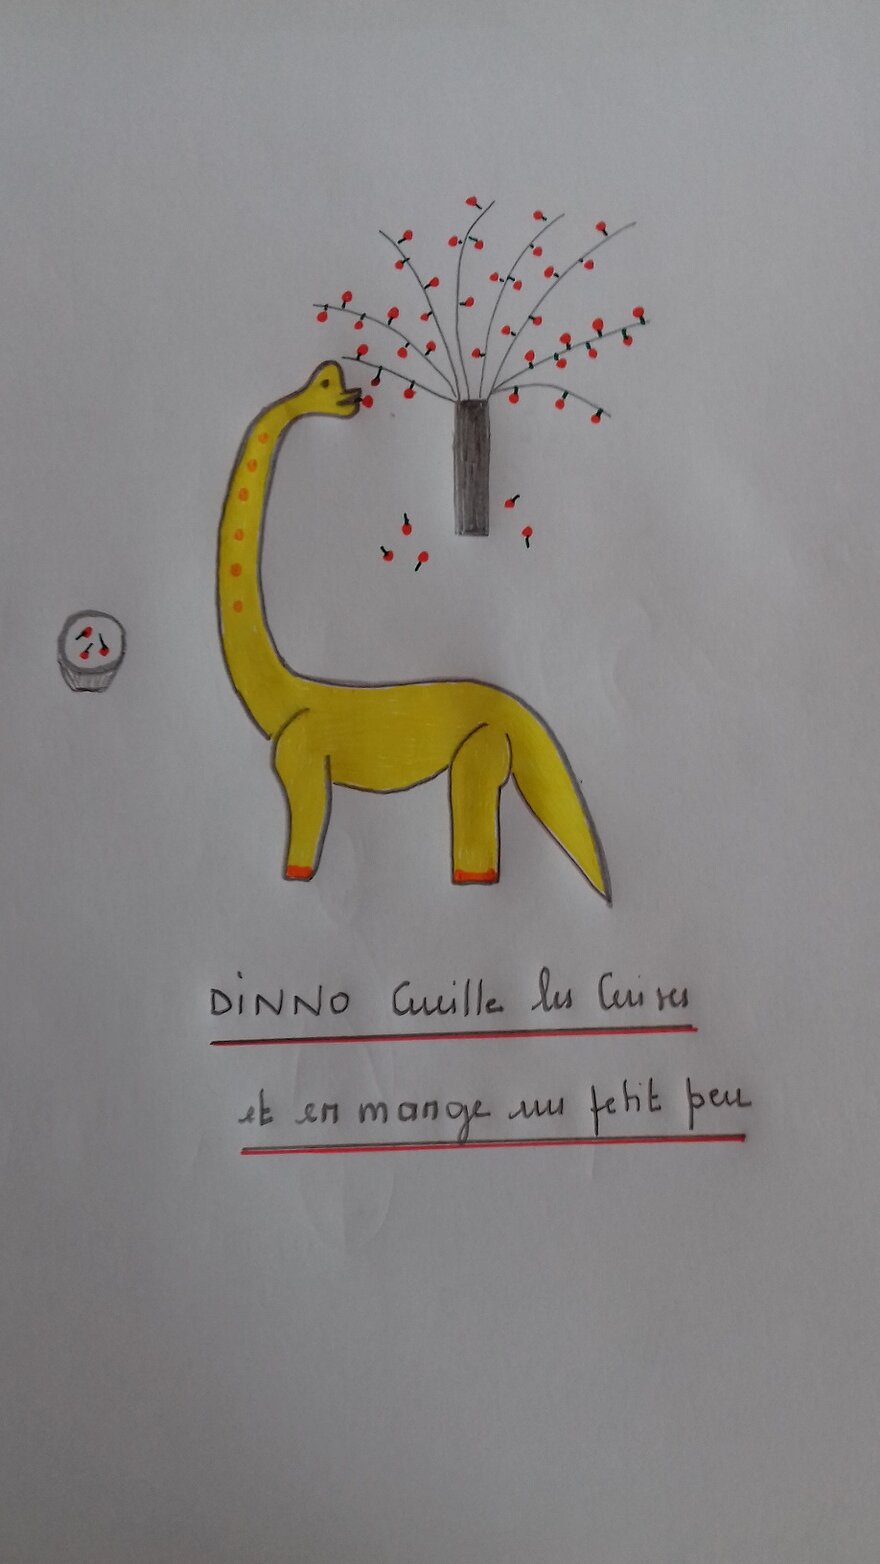 DINNO Cueille les Cerises
et en mange un petit peu